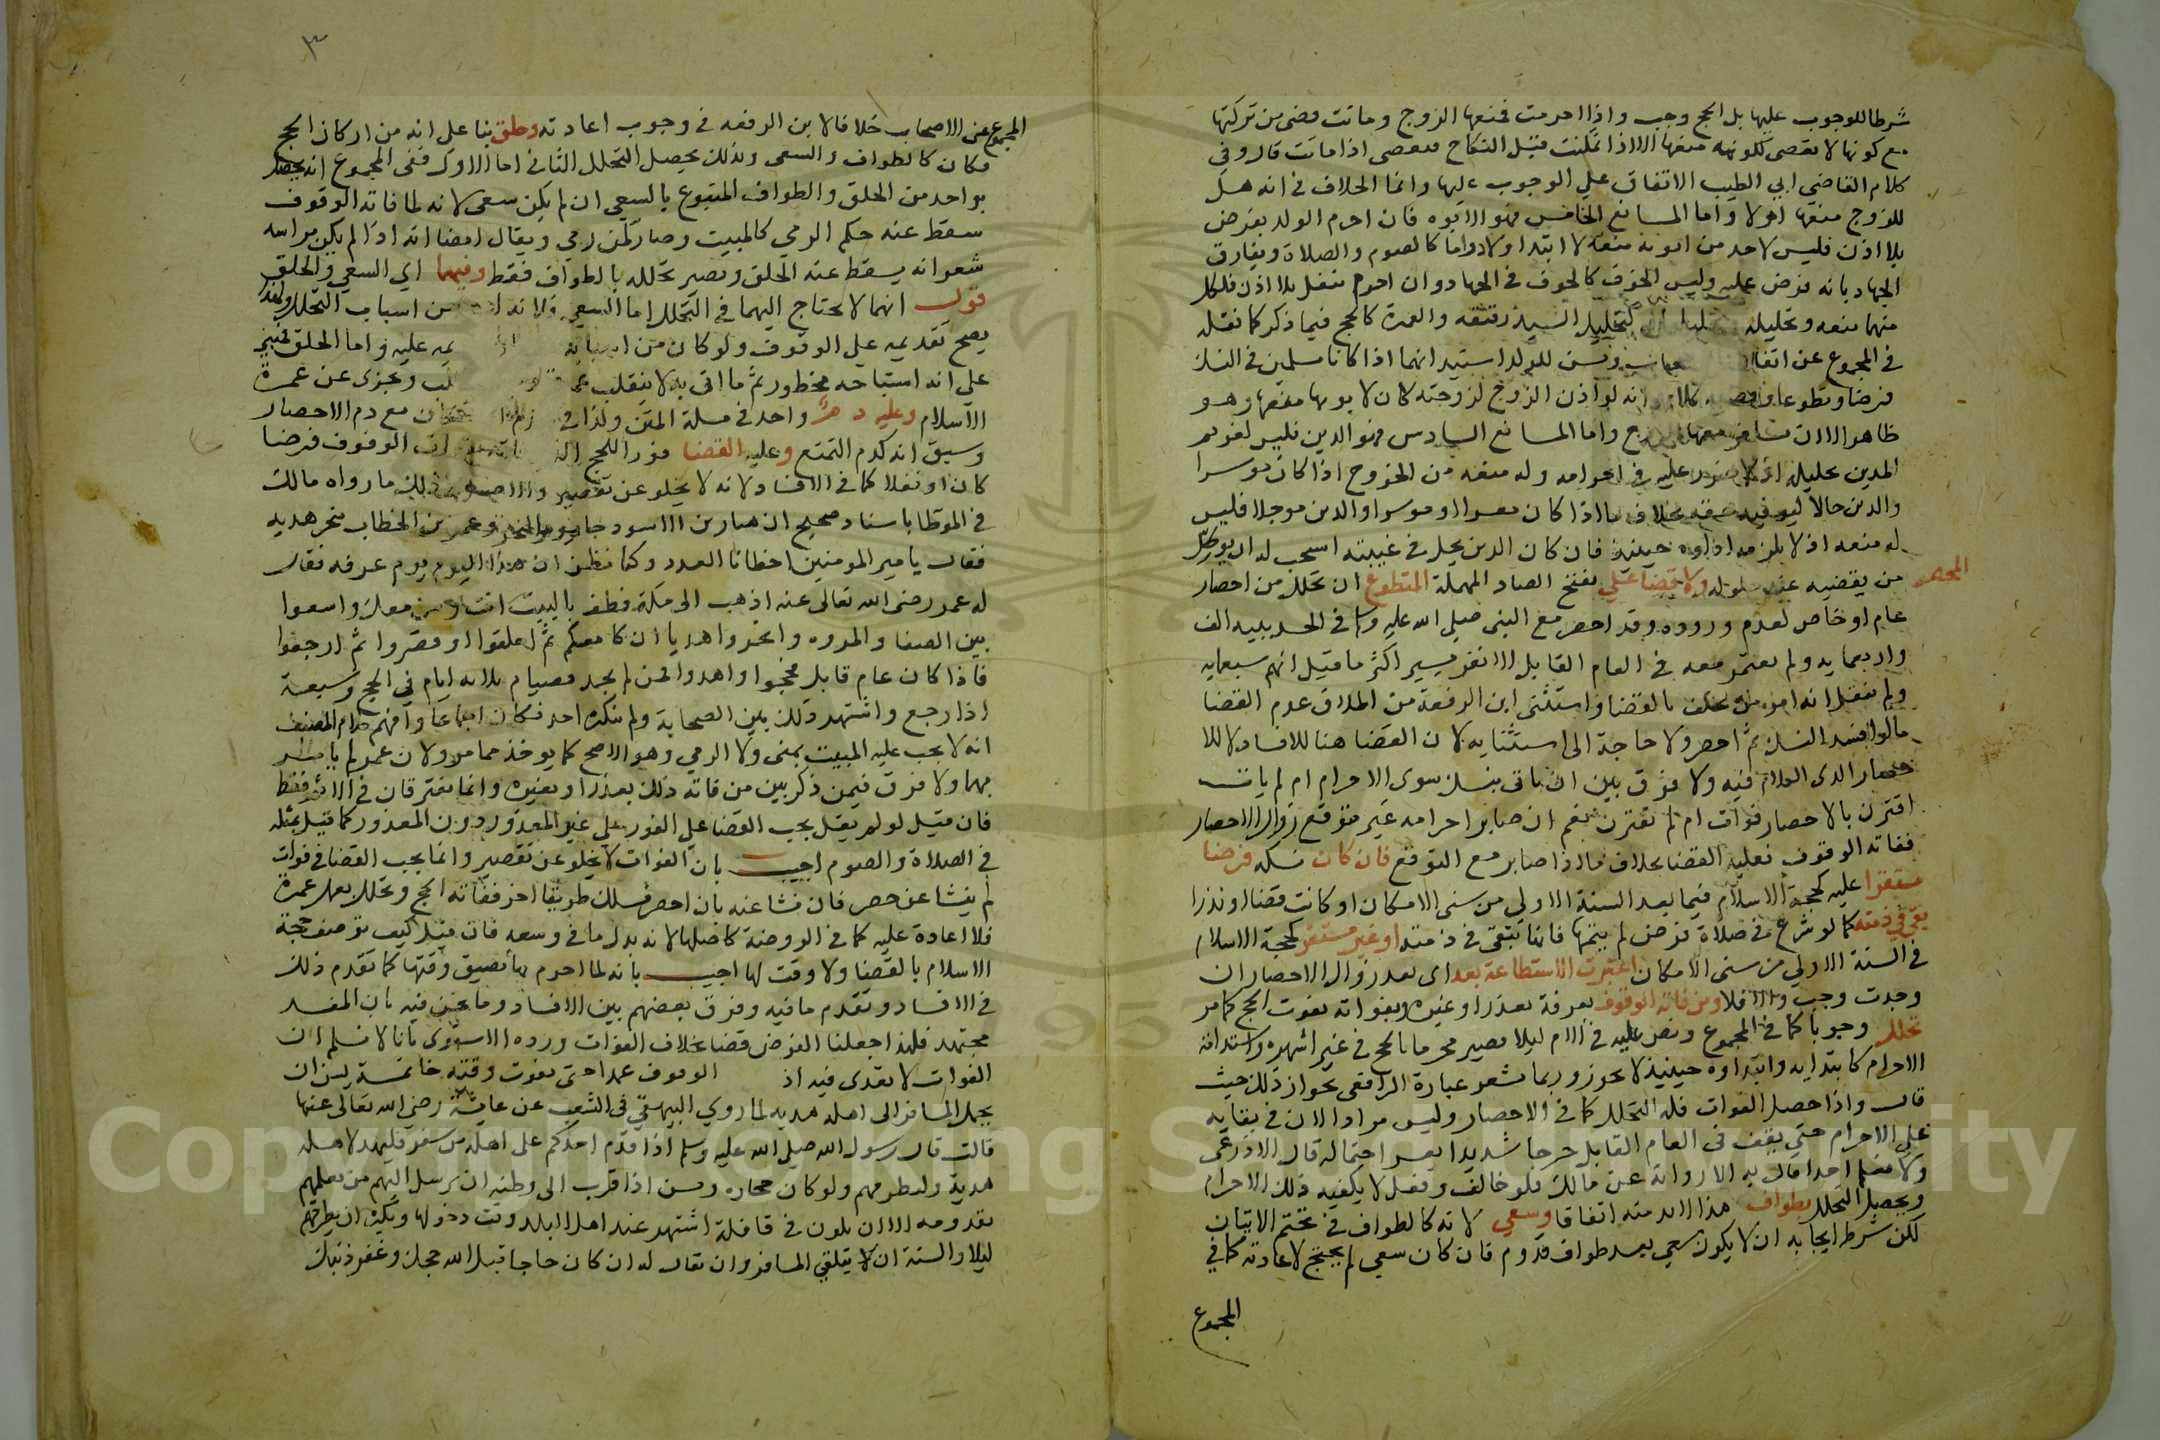 شرطا للوجوب عليها بل الحج وجب واذا احرمت فمنعها الزوج وماتت قضى من تركتها
مع كونها لا تعصي لكونه منعها الا اذا تمكنت قبل النكاح فتعصي اذا ماتت قال وفي
كلام القاضي ابي الطيب الاتفاق على الوجوب عليها وانما الخلاف في انه هل
للزوج منعها او لا واما المانع الخامس فهو الابوه فان احرم الولد بفرض
بلا اذن فليس لاحد من ابويه منعه لا ابتدا ولا دواما كالصوم والصلاة ويفارق
الجهاد بانه فرض عليه وليس الخوف كالخوف في الجهاد وان احرم بنفل بلا اذن فلكل
منهما منعه وتحليله كتحليل السيد رقيقه والعمرة كالحج فيما ذكر كما نقله
في المجموع عن اتفاق ويسن للولد استيذانهما اذا كانا مسلمين في النسك
فرضا وتطوعا وقضية كلامه انه لو اذن الزوج لزوجته كان لابويها منعها وهو
ظاهر الا ان يسافر معها الزوج واما المانع السادس فهو الدين فليس لغريم
المدين تحليله اذ لا ضرر عليه في احرامه وله منعه من الخروج اذا كان موسرا
والدين حالا ليوفيه حقه بخلاف ما اذا كان معسرا او موسرا والدين موجلا فليس
له منعه اذ لا يلزمه اداوه حينيذ فان كان الدين يحل في غيبته استحب له ان يوكل
من يقضيه عند حلوله ولا قضا على بفتح الصاد المهملة المتطوع ان تحلل من احصار
المحصر
عام او خاص لعدم وروده وقد احصر مع النبي صلى الله عليه وسلم في الحديبيه الف
واربعمايه ولم يعتمر معه في العام القابل الا نفر يسير اكثر ما قيل انهم سبعمايه
ولم ينقل انه امر من تخلف بالقضا واستثنى ابن الرفعة من اطلاق عدم القضا
ما لو افسد النسك ثم احصر ولا حاجة الى استثنايه لان القضا هنا للافساد لا للا
حصار الذي الكلام فيه ولا فرق بين ان ياتي بنسك سوى الاحرام ام لم يات
اقترن بالاحصار فوات ام لم يقترن نعم ان صابر احرامه غير متوقع زوال الاحصار
ففاته الوقوف فعليه القضا بخلاف ما اذا صابر مع التوقع فان كان نسكه فرضا
مستقرا عليه كحجة الاسلام فيما بعد السنة الاولى من سني الامكان او كانت قضا او نذرا
بقي في ذمته كما لو شرع في صلاة فرض لم يتمها فانها تبقى في ذمته او غير مستقر كحجة الاسلام
في السنة الاولى من سني الامكان اعتبرت الاستطاعة بعد اي بعد زوال الاحصار ان
وجدت وجب والا فلا ومن فاته الوقوف بعرفة بعذر او غيره وبفواته يفوت الحج كما مر
تحلل وجوبا كما في المجموع ونص عليه في الام ليلا يصير محرما بالحج في غير اشهره واستدامة
الاحرام كابتدايه وابتداوه حينيذ لا يجوز وربما تشعر عبارة الرافعي بجواز ذلك حيث
قال واذا حصل الفوات فله التحلل كما في الاحصار وليس مرادا لان في بقايه
على الاحرام حتى يقف في العام القابل حرجا شديدا يعسر احتماله قال الاذرعي
ولا نعلم احدا قال به الا رواية عن مالك فلو خالف وفعل لا يكفيه ذلك الاحرام
ويحصل التحلل بطواف هذا لابد منه اتفاقا وسعي لانه كالطواف في تحتم الاتيان
لكن شرط ايجابه ان لا يكون سعي بعد طواف قدوم فان كان سعي لم يحتج لاعادته كما في
المجموع
٣
المجموع عن الاصحاب خلافا لابن الرفعه في وجوب اعادته وحلق بنا على انه من اركان الحج
فكان كالطواف والسعي وبذلك يحصل التحلل الثاني اما الاول ففي المجموع انه يحصل
بواحد من الحلق والطواف المتبوع بالسعي ان لم يكن سعى لانه لما فاته الوقوف
سقط عنه حكم الرمي كالمبيت وصار كمن رمى ويقال ايضا انه اذا لم يكن براسه
شعر انه يسقط عنه الحلق ويصير تحلله بالطواف فقط وفيهما اي السعي والحلق
قول انهما لا يحتاج اليهما في التحلل اما السعي فلانه من اسباب التحلل ولهذا
يصح تقديمه على الوقوف ولو كان من اسبابه عليه واما الحلق فمبني
على انه استباحه محظور ثم ما اتى به لا ينقلب عمرة ويجزى عن عمرة
الاسلام وعليه دم واحد في مسلة المتن ولذا مع دم الاحصار
وسبق انه كدم التمتع وعليه القضا فورا للحج الوقوف فرضا
كان او نفلا كما في الافساد لانه لا يخلو عن تقصير والاصل في ذلك ما رواه مالك
في الموطا باسناد صحيح ان هبار بن الاسود جا يوم النحر وعمر بن الخطاب ينحر هديه
فقال يا امير المومنين اخطانا العدد وكنا نظن ان هذا اليوم يوم عرفه فقال
له عمر رضي الله تعالى عنه اذهب الى مكة فطف بالبيت انت ومن معك واسعوا
بين الصفا والمروه وانحروا هديا ان كان معكم ثم احلقوا او قصروا ثم ارجعوا
فاذا كان عام قابل فحجوا واهدوا فمن لم يجد فصيام ثلاثه ايام في الحج وسبعة
اذا رجع واشتهر ذلك بين الصحابة ولم ينكره احد فكان اجماعا وافهم كلام المصنف
انه لا يجب عليه المبيت بمنى ولا الرمي وهو الاصح كما يوخذ مما مر ولان عمر لم يامر
بهما ولا فرق فيمن ذكر بين من فاته ذلك بعذر او بغيره وانما يفترقان في الاثم فقط
فان قيل لو لم يقل يجب القضا على الفور على غير المعذور دون المعذور كما قيل بمثله
في الصلاة والصوم اجيب بان الفوات لا يخلو عن تقصير وانما يجب القضا في فوات
لم ينشا عن حصر فان نشا عنه بان احصر فسلك طريقا اخر ففاته الحج وتحلل بعمل عمرة
فلا اعادة عليه كما في الروضة كاصلها لانه بذل ما في وسعه فان قيل كيف توصف حجة
الاسلام بالقضا ولا وقت لها اجيب بانه لما احرم بها تضيق وقتها كما تقدم ذلك
في الافساد وتقدم ما فيه وفرق بعضهم بين الافساد وما نحن فيه بان المفسد
مجتهد فلهذا جعلنا الفرض قضا بخلاف الفوات ورده الاسنوي بانا لا نسلم ان
الفوات لا تعدي فيه اذ الوقوف عمدا حتى يفوت وقته خاتمة يسن ان
يحمل المسافر الى اهله هديه لما روي البيهقي في الشعب عن عايشة رضي الله تعالى عنها
قالت قال رسول الله صلى الله عليه وسلم اذا قدم احدكم على اهله من سفر فليهد لاهله
هدية وليطرفهم ولو كان حجاره ويسن اذا قرب الى وطنه ان يرسل اليهم من يعلمهم
بقدومه الا ان يكون في قافلة اشتهر عند اهل البلد وقت دخولها ويكره ان يطرقهم
ليلا والسنة ان يتلقى المسافر وان يقال له ان كان حاجا قبل الله حجك وغفر ذنبك